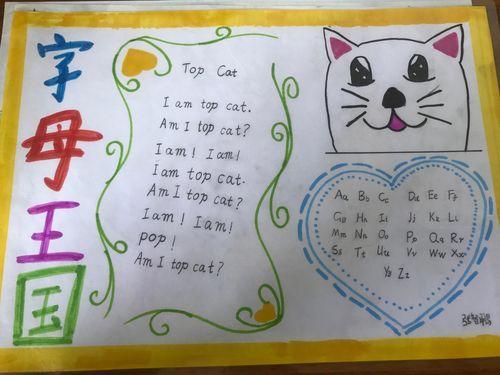 字母王国
Top Cat
I am top cat.
Am I top cat?
I am! I am!
I am top cat.
Am I top cat?
I am! I am!
pop!
Am I top cat?
Aa Bb Cc Dd Ee Ff
Gg Hh Ii Jj Kk Ll
Mm Nn Oo Pp Qq Rr
Ss Tt Uu Vv Ww Xx
Yy Zz